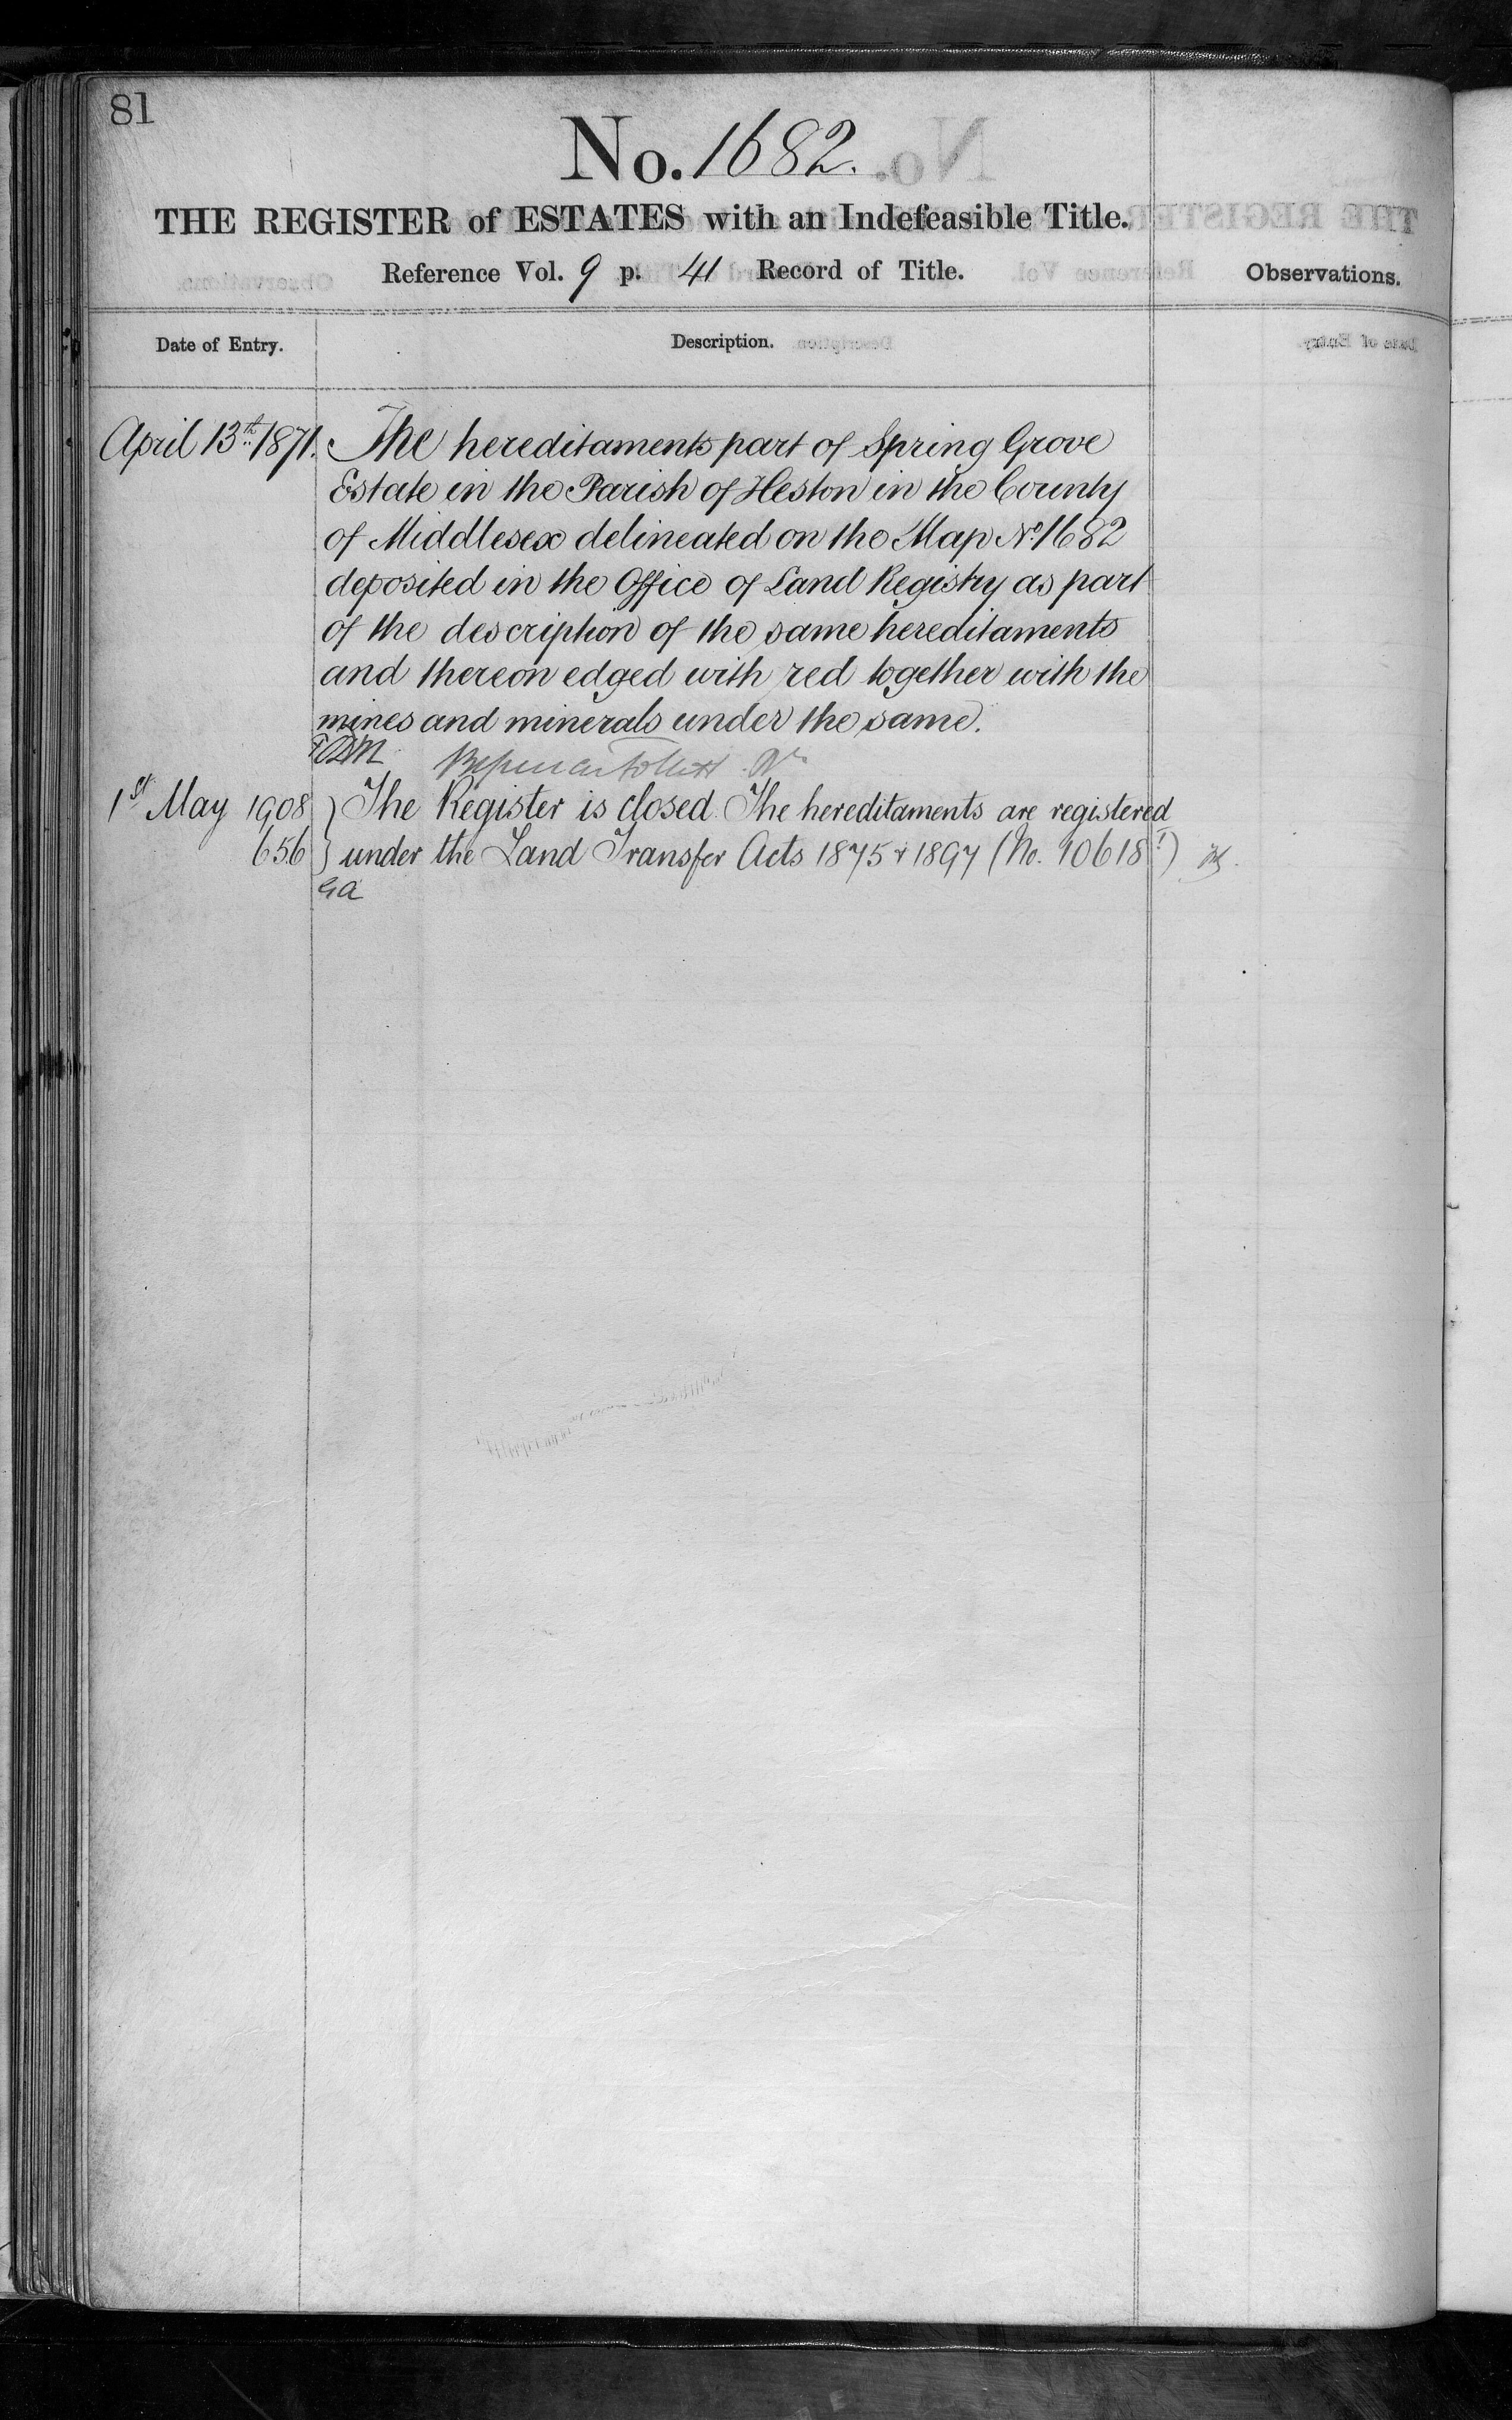 81
No. 1682.
THE REGISTER of ESTATES with an Indefeasible Title.
Reference Vol. 9 p. 41 Record of Title.
Observations.
Date of Entry.
Description.
April 13th 1871. The hereditaments part of Spring Grove
Estate in the Parish of Heston in the County
of Middlesex delineated on the Map No. 1682
deposited in the Office of Land Registry as part
of the description of the same hereditaments
and thereon edged with red together with the
mines and minerals under the same.
1st May 1908 } The Register is closed. The hereditaments are registered
656 } under the Land Transfer Acts 1875 & 1897 (No. 10618)